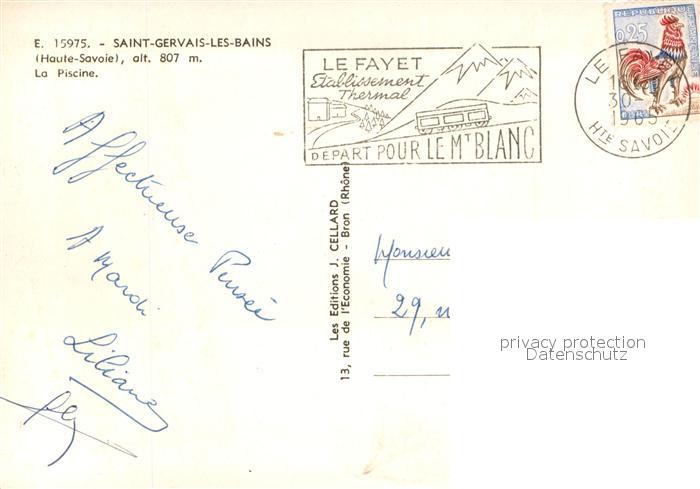 E. 15975. - SAINT-GERVAIS-LES-BAINS
(Haute-Savoie), alt. 807 m.
La Piscine.
LE FAYET
Etablissement
Thermal
DEPART POUR LE MT BLANC
REPUBLIQUE
0,25
LE
30
1965
HTE SAVOIE
Affectueuse Pensée
A Mardi
Liliane
Les Editions J. CELLARD
13, rue de l'Economie - Bron (Rhône)
Monsieu
29,
privacy protection
Datenschutz